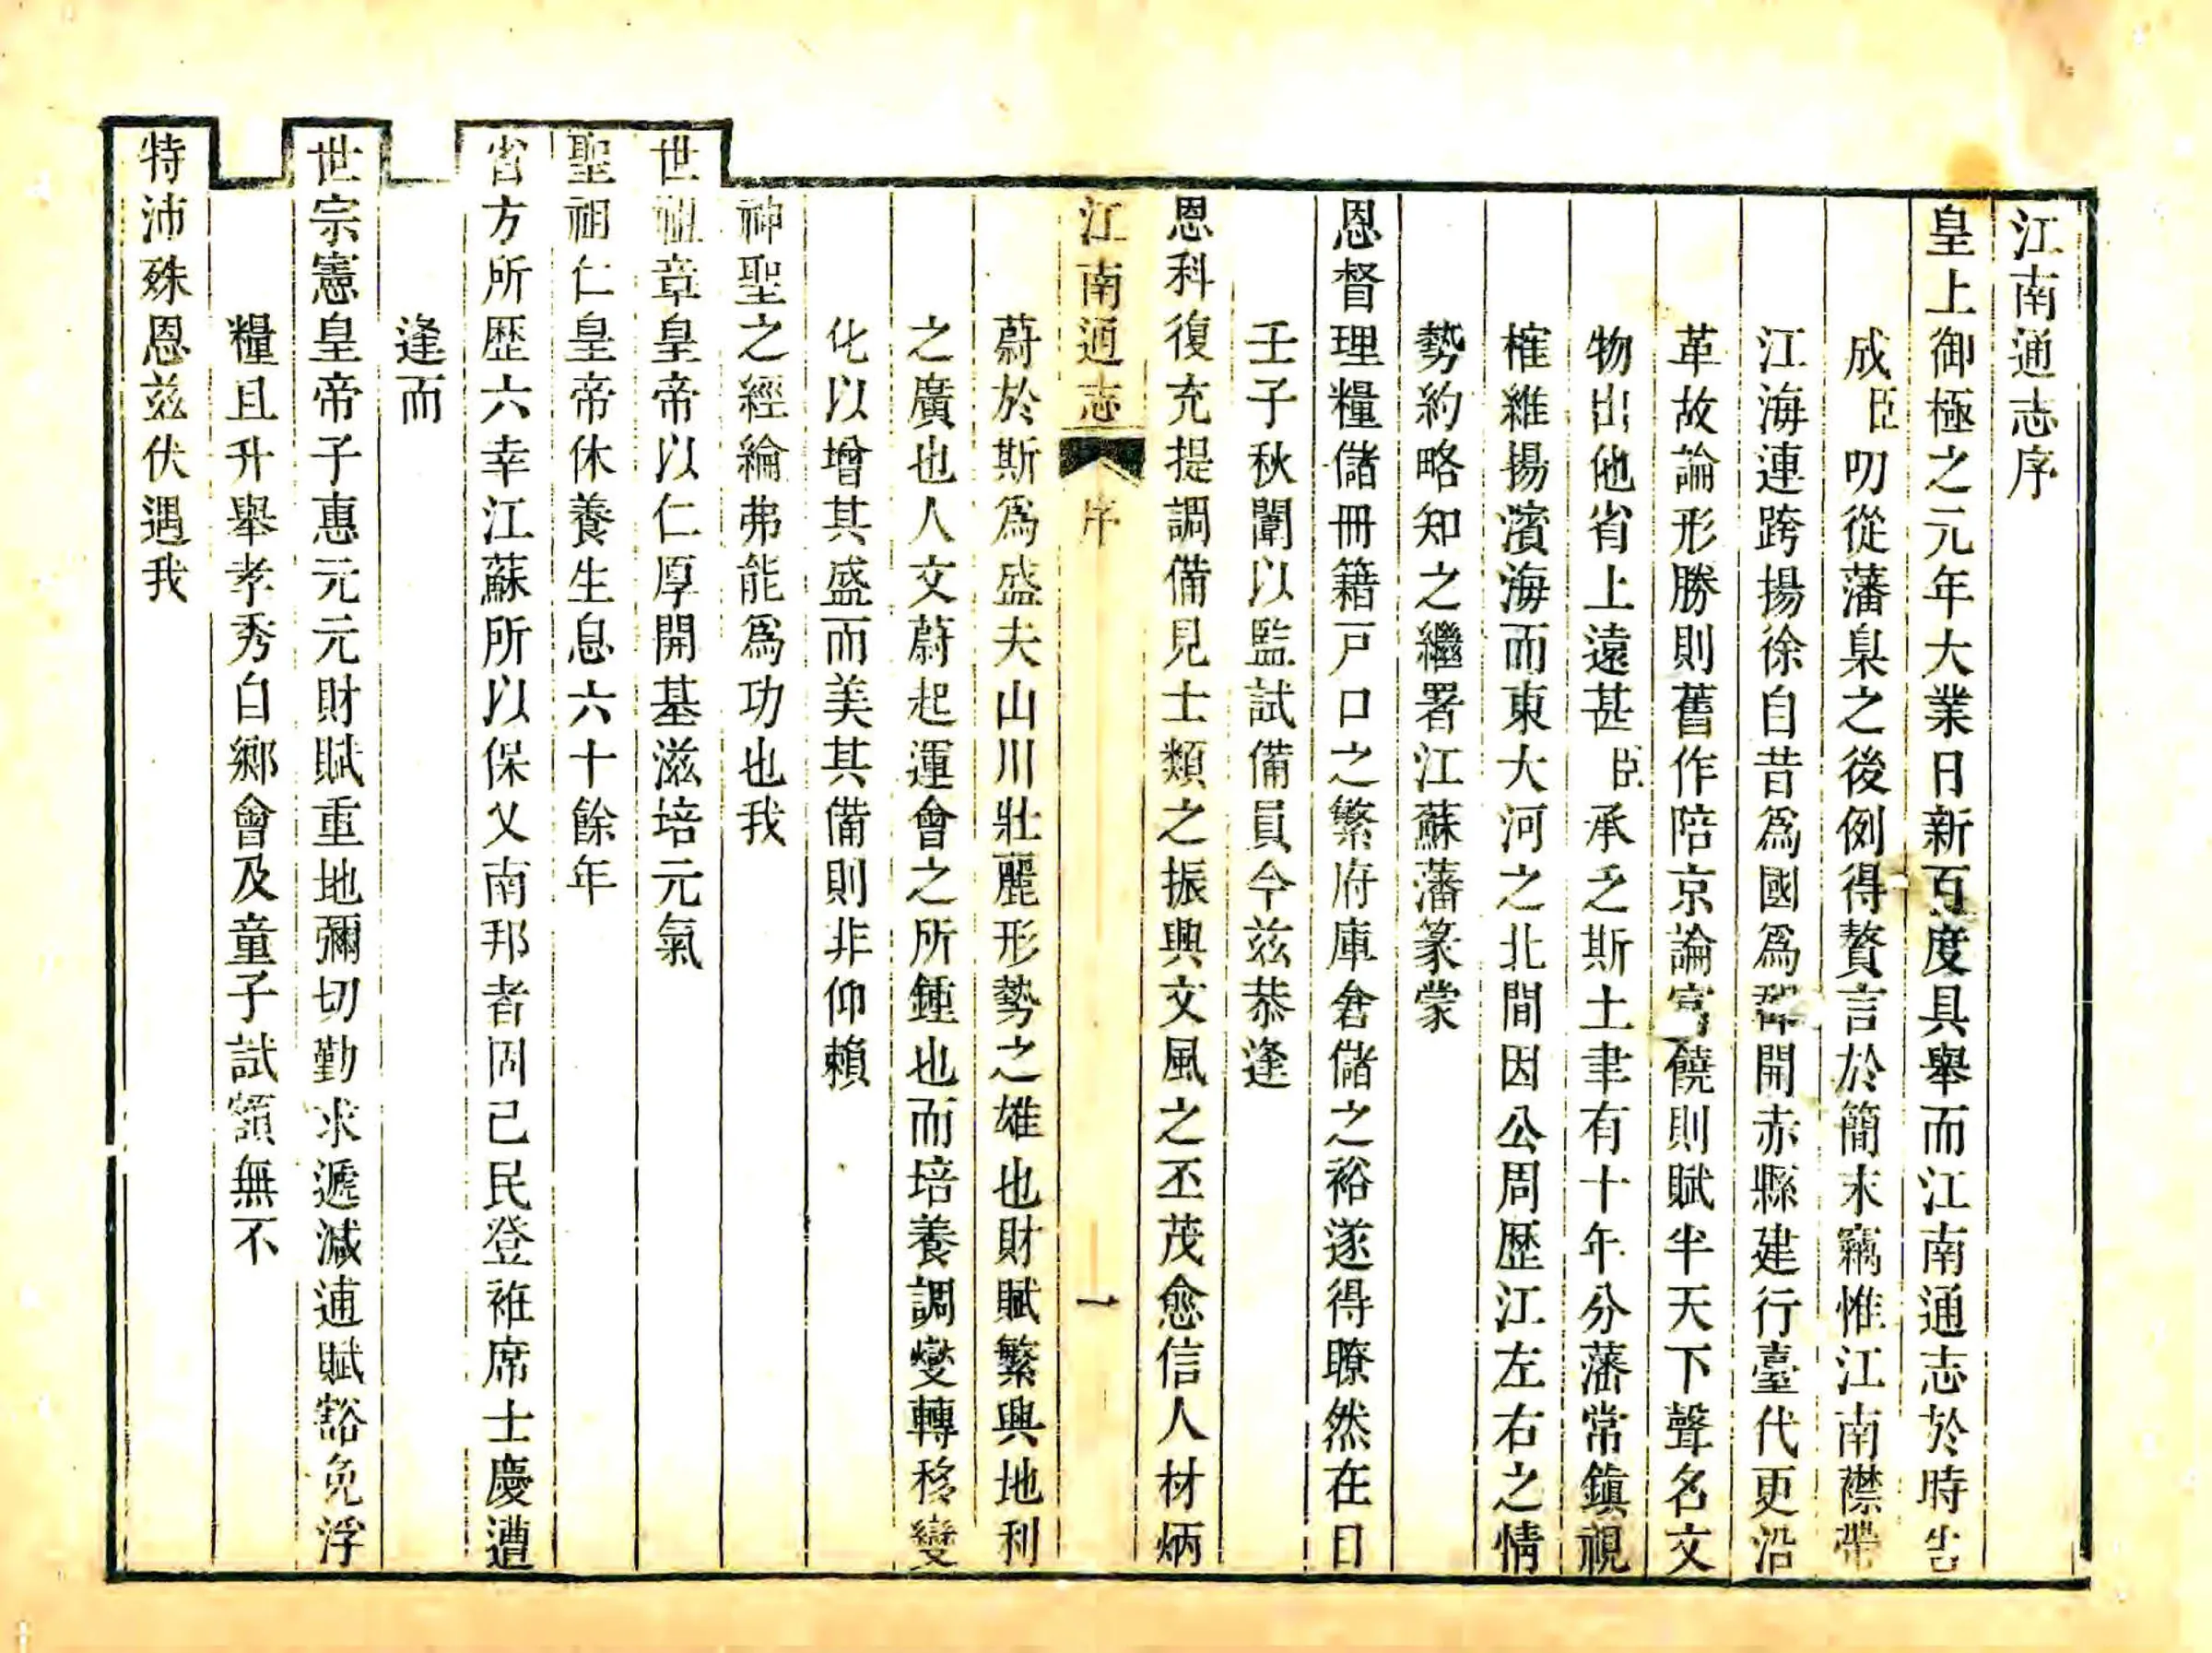 江南通志序
皇上御極之元年大業日新百度具舉而江南通志於時告
成臣叨從藩臬之後例得贅言於簡末竊惟江南襟帶
江海連跨揚徐自昔爲國爲郡開赤縣建行臺代更沿
革故論形勝則舊作陪京論富饒則賦半天下聲名文
物出他省上遠甚臣承乏斯土聿有十年分藩常鎮視
榷維揚濱海而東大河之北間因公周歷江左右之情
勢約略知之繼署江蘇藩篆蒙
恩督理糧儲冊籍戸口之繁府庫倉儲之裕遂得瞭然在目
壬子秋闈以監試備員今兹恭逢
恩科復充提調備見士類之振興文風之丕茂愈信人材炳
江南通志 序 一
蔚於斯爲盛夫山川壯麗形勢之雄也財賦繁興地利
之廣也人文蔚起運會之所鍾也而培養調燮轉移變
化以增其盛而美其備則非仰賴
神聖之經綸弗能爲功也我
世祖章皇帝以仁厚開基滋培元氣
聖祖仁皇帝休養生息六十餘年
省方所歴六幸江蘇所以保乂南邦者固己民登袵席士慶遭
逢而
世宗憲皇帝子惠元元財賦重地彌切勤求遞減逋賦豁免浮
糧且升舉孝秀自鄉會及童子試額無不
特沛殊恩兹伏遇我